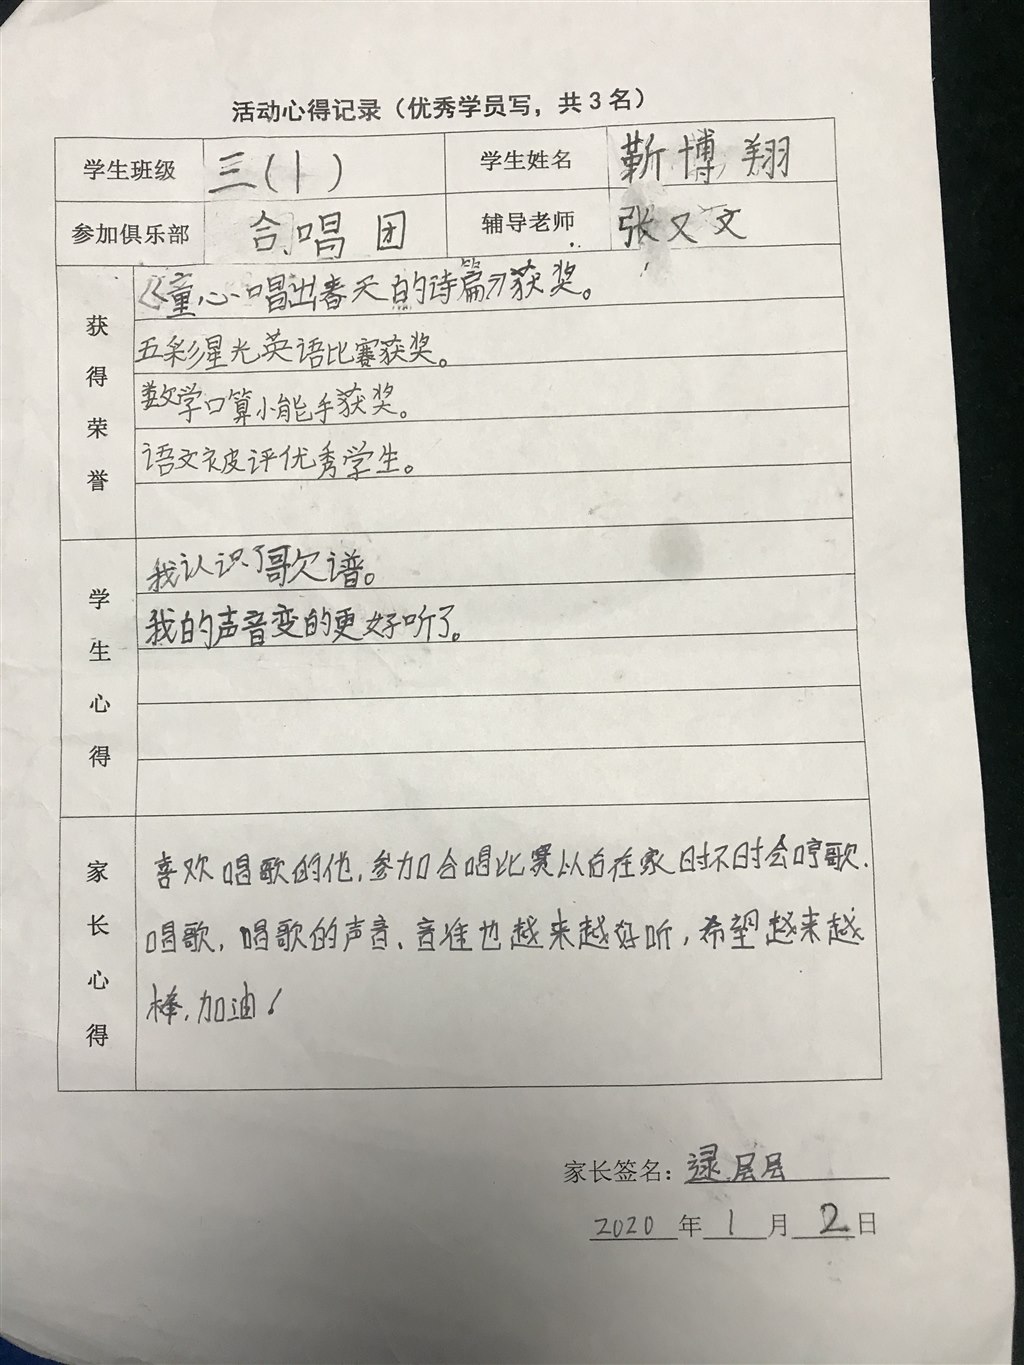 活动心得记录（优秀学员写，共3名）
学生班级 三（1） 学生姓名 靳博翔
参加俱乐部 合唱团 辅导老师 张又文
获得荣誉
《童心唱出春天的诗篇》获奖。
五彩星光英语比赛获奖。
数学口算小能手获奖。
语文被评优秀学生。
学生心得
我认识了歌谱。
我的声音变的更好听了。
家长心得
喜欢唱歌的他，参加合唱比赛以后在家时不时会哼歌.
唱歌，唱歌的声音、音准也越来越好听，希望越来越
棒，加油！
家长签名：逯层层
2020年1月2日